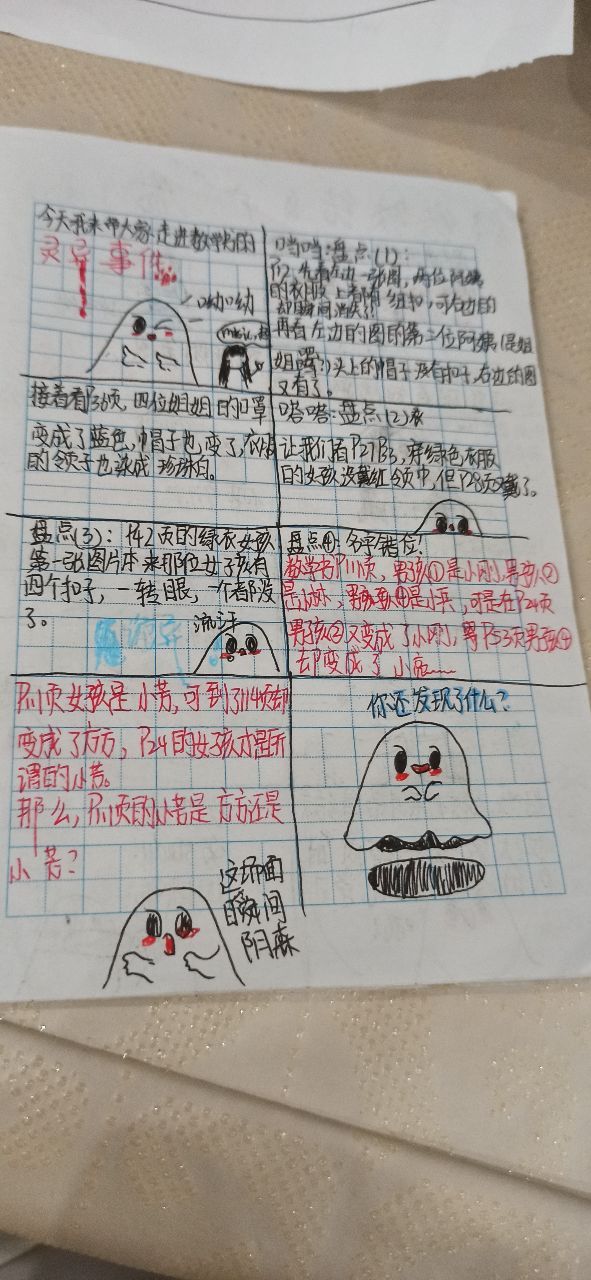 今天我来带大家走进数学书的
灵异事件
呦呦
music,起
当当:盘点(1):
先看左边一张图,两位阿姨
的衣服上都有纽扣,可右边的
却瞬间消失了!
再看左边的图的第二位阿姨(是姐
姐嘿?)头上的帽子没有扣子,右边的图
又有了。
接着看P36页,四位姐姐的口罩
变成了蓝色,帽子也变了,衣服
的领子也染成珍珠白。
嗒嗒:盘点(2)
让我们看P27,穿绿色衣服
的女孩没戴红领巾,但P28页又戴了。
盘点(3):P42页的绿衣女孩
第一张图片本来那位女孩有
四个扣子,一转眼,一个都没
了。
流汗
盘点④:名字错位!
数学书P111页,男孩①是小刚,男孩②
是小林,男孩④是小兵,可是在P24页
男孩②又变成了小刚,男孩④
却变成了小亮……
页女孩是小芳,可到了114页却
变成了方方,P24的女孩亦是所
谓的小芳。
那么,页的小芳是方方还是
小芳?
这场面
瞬间
阴森
你还发现了什么?